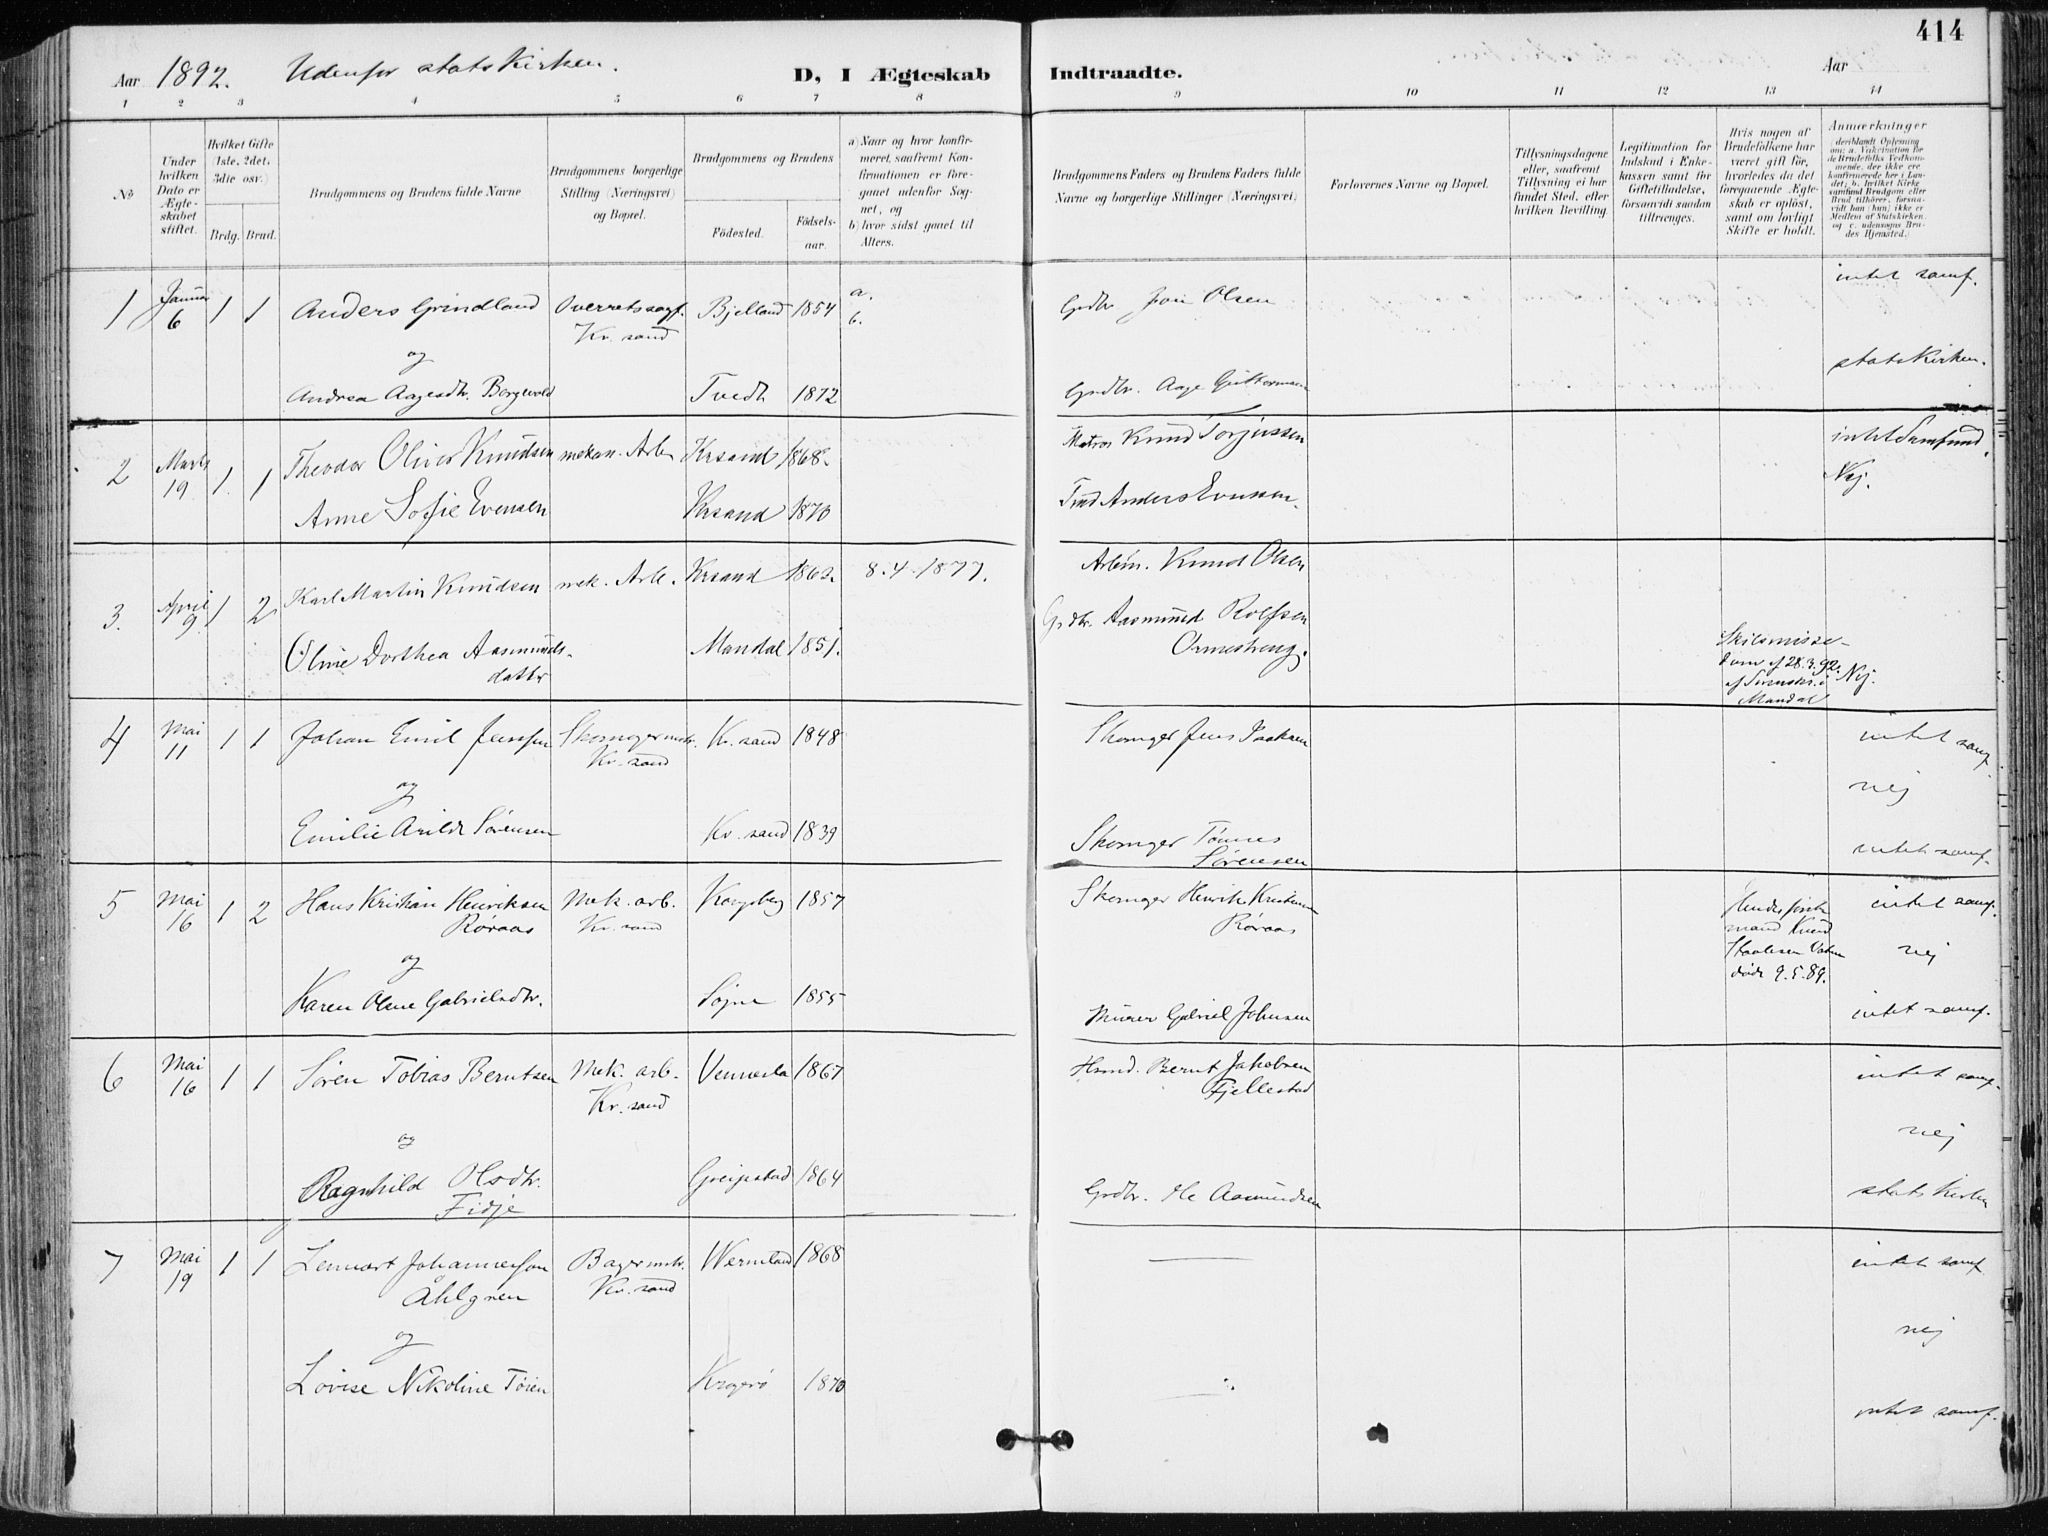 414
Aar 1892. Udenfor statskirken. D, I Ægteskab Indtraadte. Aar
1 2 3 4 5 6 7 8 9 10 11 12 13 14
No
Under hvilken Dato er Ægteskabet stiftet.
Hvilket Gifte (1ste, 2det, 3die osv.)
Brdg. Brud.
Brudgommens og Brudens fulde Navne
Brudgommens borgerlige Stilling (Næringsvei) og Bopæl.
Brudgommens og Brudens
Födested.
Födsels-aar.
a) Naar og hvor konfirmeret, saafremt Konfirmationen er foregaaet udenfor Sognet, og
b) hvor sidst gaaet til Alters.
Brudgommens Faders og Brudens Faders fulde Navne og borgerlige Stillinger (Næringsvei)
Forlovernes Navne og Bopæl.
Tillysningsdagene eller, saafremt Tillysning ei har fundet Sted, efter hvilken Bevilling.
Legitimation for Indskud i Enkekassen samt for Giftetilladelse, forsaavidt saadan tiltrænges.
Hvis nogen af Brudefolkene har været gift för, hvorledes da det foregaaende Ægteskab er oplöst, samt om lovligt Skifte er holdt.
Anmærkninger (deriblandt Oplysning om: a. Vakcination for de Brudefolks Vedkommende, der ikke ere konfirmerede her i Landet; b. hvilket Kirkesamfund Brudgom eller Brud tilhörer, forsaavidt han (hun) ikke er Medlem af Statskirken, og c. udensogns Brudes Hjemsted.)
1 Januar 6 1 1 Anders Grindland Overretssagf. Kr. sand Bjelland 1854 a. b. Grdbr. Jon Olsen intet samf.
og
Andrea Aagesdtr. Bergevold Tvedt 1872 Grdbr. Aage Guttormsen statskirken.
2 Marts 19 1. 1 Theodor Oliver Knudsen mekan. Arb. Krsand 1868. Matros Knud Torjussen intet Samfund.
Anne Sofie Evensen Krsand 1870 Anders Evensen. Nej.
3. April 9 1 2 Karl Martin Knudsen mek. Arb. Krsand 1862. 8.4.1877. Arbm. Knud Olsen
Oline Dorthea Aasmunds-datter Mandal 1851. Grdbr. Aasmund Rolfsen Ormestreng. Skilsmisse-dom af 28.3.92. af i Mandal Nej.
4 Mai 11 1 1 Johan Emil Jenssen Skomagermstr. Kr. sand Kr. sand 1848 Skomager Jens Isaksen intet samf.
og nej
Emilie Arildt Sørensen Kr. sand 1839 Skomager Tønnes Sørensen intet samf.
5 Mai 16 1 2 Hans Kristian Henriksen Røraas Mek. arb. Kr. sand Kongsberg 1857 Skomager Henrik Kristiansen Røraas Hendes første mand Knud Staalesen døde 9.5.89. intet samf.
og nej
Karen Oline Gabrielsdtr. Søgne 1855 Murer Gabriel Johnsen intet samf.
6 Mai 16 1 1 Søren Tobias Berntsen Mek. arb. Kr. sand Vennesla 1867 Hsmd. Bernt Jakobsen Fjellestad intet samf.
og nej
Ragnhild Olsdtr. Fidje Greipstad 1864 Grdbr. Ole Aasmundsen statskirken
7 Mai 19 1 1 Lennart Johannesson Åhlgren Bagermstr. Kr. sand Wermland 1868 — intet samf.
og nej
Lovise Nikoline Tøien Kragerø 1870 — intet samf.